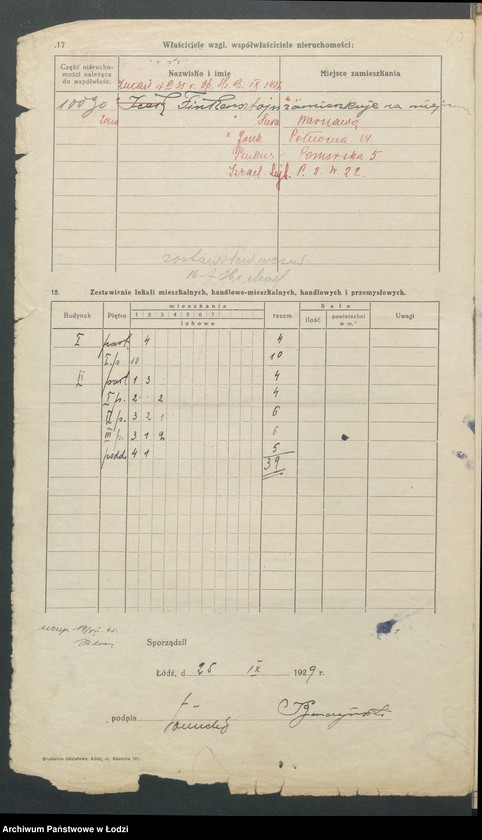 .17 Właściciele wzgl. współwłaściciele nieruchomości:
Część nierucho-
mości należąca
do współwłaśc.
Nazwisko i imię
Miejsce zamieszkania
100%
Icek Finkensztajn zamieszkuje na miejscu
" Sura Warszawa
" Josek Północna 14
Pomorska 5
Izrael P. O. W 22.
18. Zestawienie lokali mieszkalnych, handlowo-mieszkalnych, handlowych i przemysłowych.
Budynek Piętro mieszkania razem Sale Uwagi
1 2 3 4 5 6 7
izbowe
ilość powierzchni w m.²
I part. 4 4
I p. 10 10
II part 1 3 4
I p. 2 - 2 4
II p. 3 2 1 6
III p. 3 1 2 6
podd. 4 1 5
39
Sporządził
Łódź, d 25 IX 1929 r.
podpis
Drukarnia Udziałowa, Łódź, ul.
Archiwum Państwowe w Łodzi